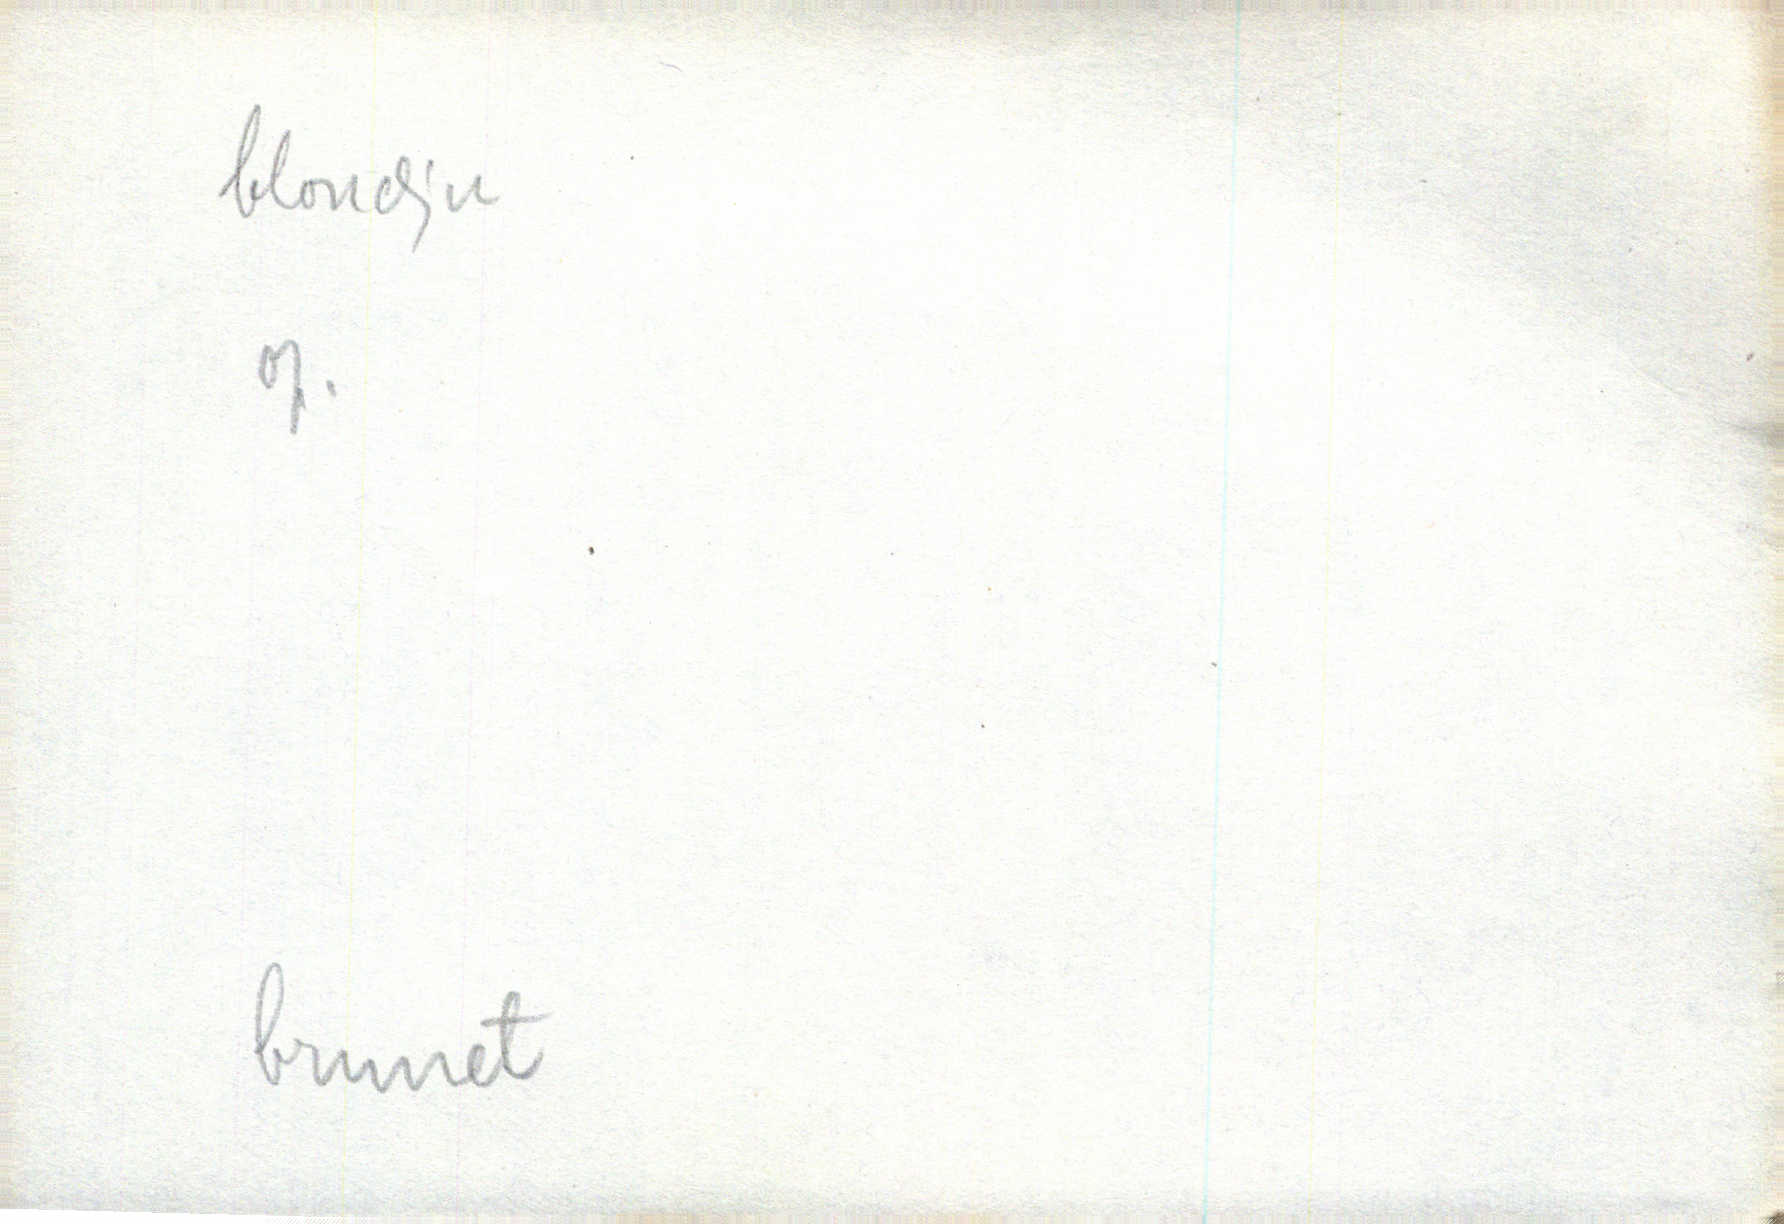 blondjn
op.
brunet